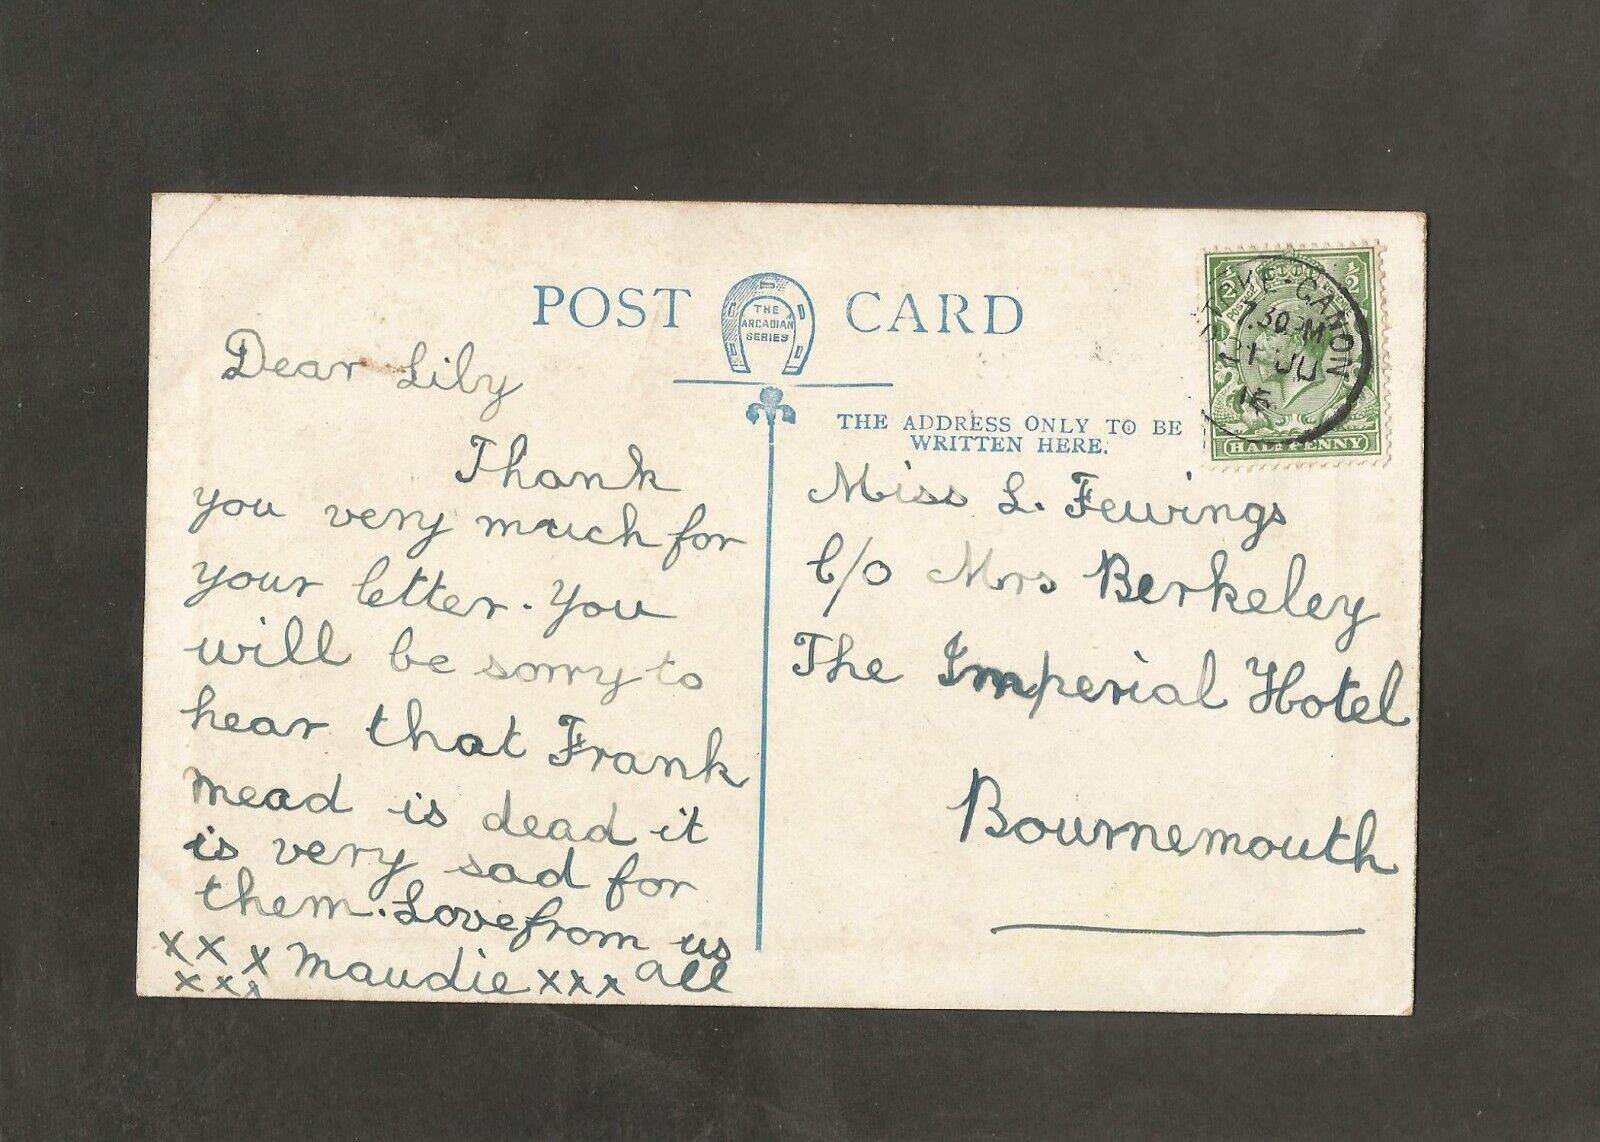 POST CARD
THE
ARCADIAN
SERIES
THE ADDRESS ONLY TO BE
WRITTEN HERE.
Dear Lily
Thank
you very much for
your letter. You
will be sorry to
hear that Frank
mead is dead it
is very sad for
them. Love from us
all
x x x Maudie x x x
x x x
Miss L. Fewings
C/o Mrs Berkeley
The Imperial Hotel
Bournemouth
1/2 1/2
HALF PENNY
KE-CANON
7.30PM
1 JU